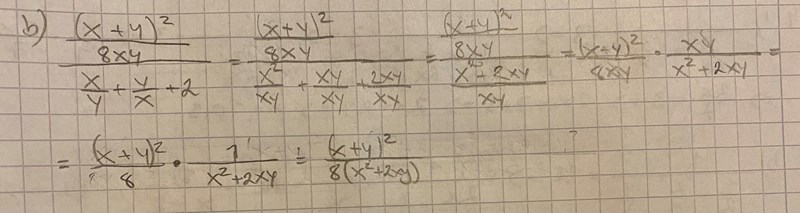 b) \frac{\frac{(x+y)^2}{8xy}}{\frac{x}{y}+\frac{y}{x}+2} = \frac{\frac{(x+y)^2}{8xy}}{\frac{x^2}{xy}+\frac{xy}{xy}+\frac{2xy}{xy}} = \frac{\frac{(x+y)^2}{8xy}}{\frac{x^2+2xy}{xy}} = \frac{(x+y)^2}{8xy} \cdot \frac{xy}{x^2+2xy} =
= \frac{(x+y)^2}{8} \cdot \frac{1}{x^2+2xy} = \frac{(x+y)^2}{8(x^2+2xy)}